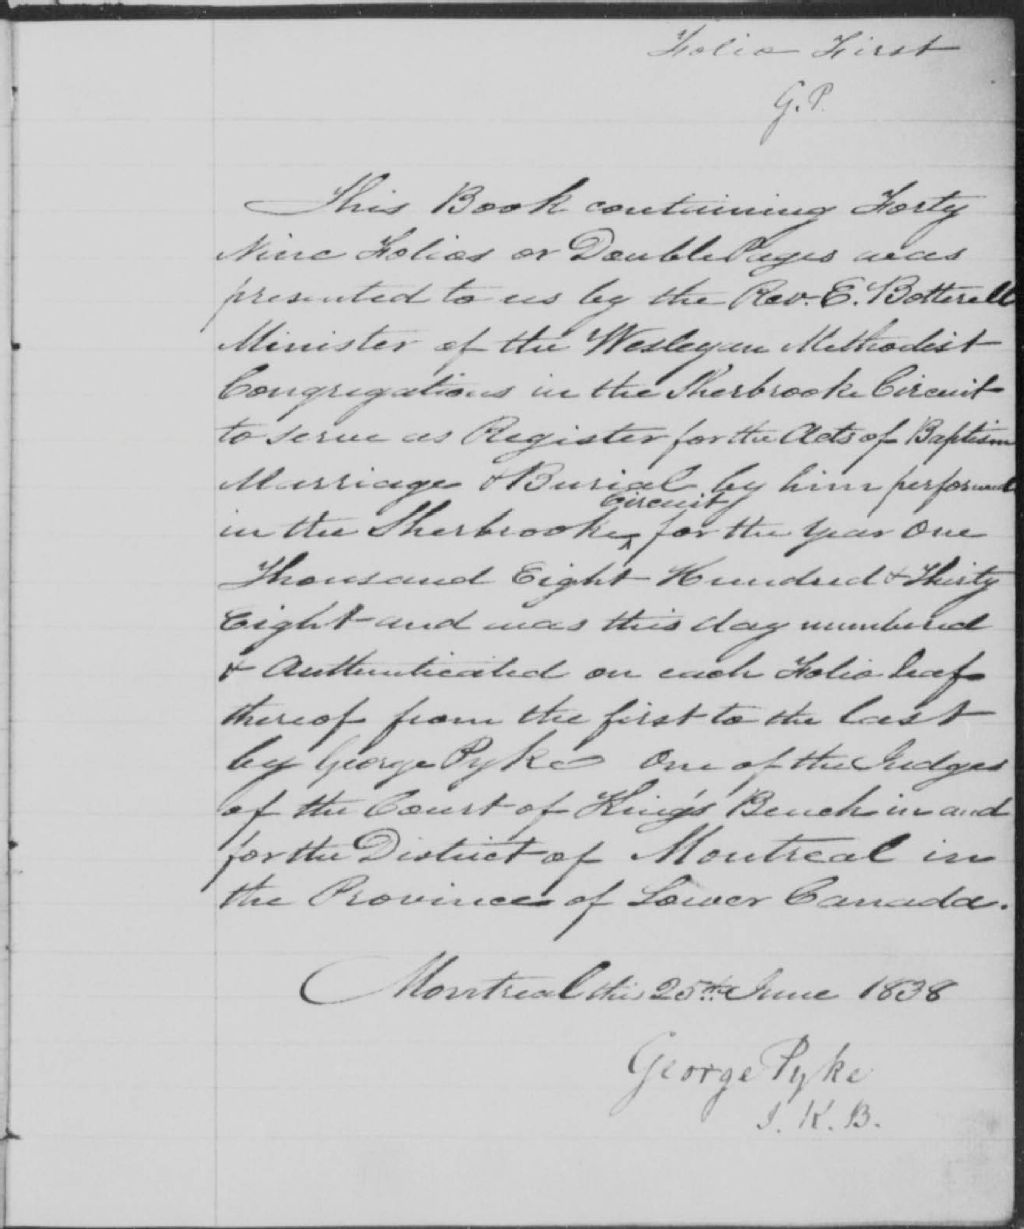 Folio First
G.P.
This Book containing Forty
Nine Folios or Double Pages was
presented to us by the Rev. E. Botterell
Minister of the Wesleyan Methodist
Congregations in the Sherbrooke Circuit
to serve as Register for the Acts of Baptism
Marriage & Burial by him performed
Circuit
in the Sherbrooke ^ for the year One
Thousand Eight Hundred & Thirty
Eight and was this day numbered
& Authenticated on each Folio leaf
thereof from the first to the last
by George Pyke One of the Judges
of the Court of King's Bench in and
for the District of Montreal in
the Province of Lower Canada.
Montreal this 25th June 1838
George Pyke
J. K. B.